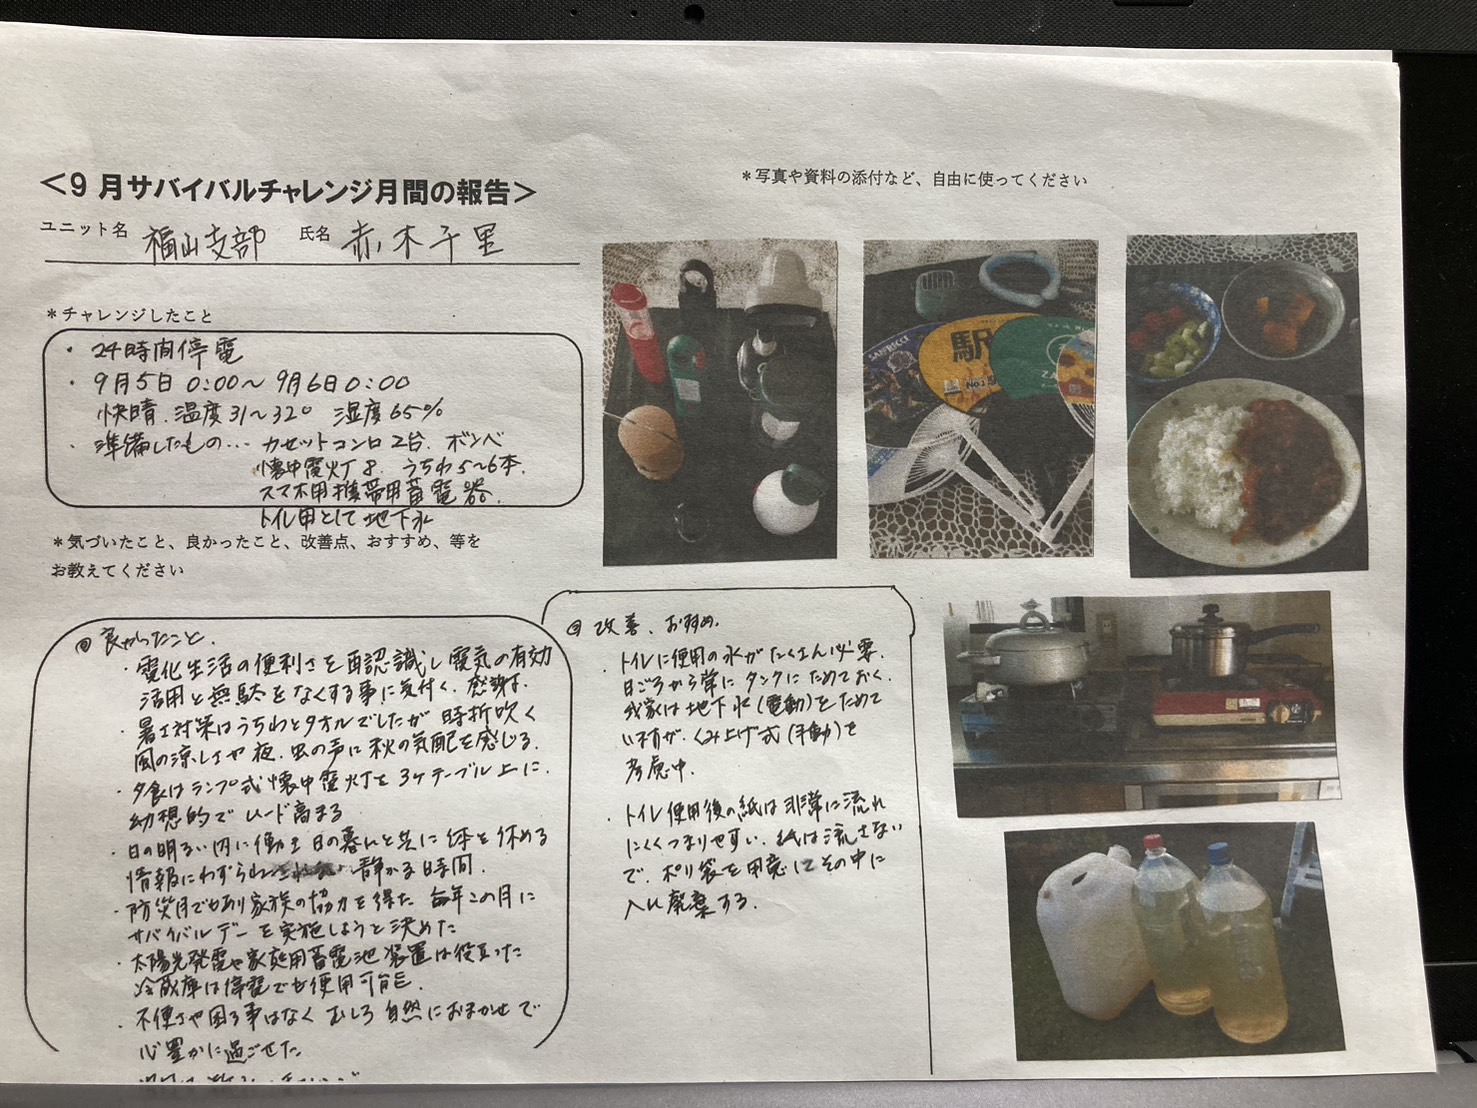 <9月サバイバルチャレンジ月間の報告>
*写真や資料の添付など、自由に使ってください
ユニット名 福山支部 氏名 赤木千里
*チャレンジしたこと
・24時間停電
・9月5日 0:00〜9月6日0:00
快晴. 温度31〜32° 湿度65%
・準備したもの… カセットコンロ2台. ボンベ
懐中電灯8. うちわ5〜6本.
スマホ用携帯用蓄電器.
トイレ用として地下水
*気づいたこと、良かったこと、改善点、おすすめ、等を
お教えてください
◎良かったこと.
・電化生活の便利さを再認識し電気の有効
活用と無駄をなくする事に気付く. 感謝よ.
暑さ対策はうちわとタオルでしたが時折吹く
風の涼しさや夜. 虫の声に秋の気配を感じる.
・夕食はランプ式懐中電灯を3ケテーブル上に.
幻想的でムード高まる
・日の明るい内に働き日の暮れと共に体を休める
情報にわずらわ 静かな時間.
・防災月でもあり家族の協力を得た 毎年この月に
サバイバルデーを実施しようと決めた
・太陽光発電や家庭用蓄電池装置は役立った
冷蔵庫は停電でも使用可能.
・不便さや困る事はなくむしろ自然におまかせで
心豊かに過ごせた.
◎改善、おすすめ.
・トイレに使用の水がたくさん必要.
日ごろから常にタンクにためておく.
我家は地下水(電動)をためて
いますが. くみ上げ式(手動)を
考慮中.
・トイレ使用後の紙は非常に流れ
にくくつまりやすい. 紙は流さない
で. ポリ袋を用意してその中に
入れ廃棄する.
SANRICCI
駅
No.1